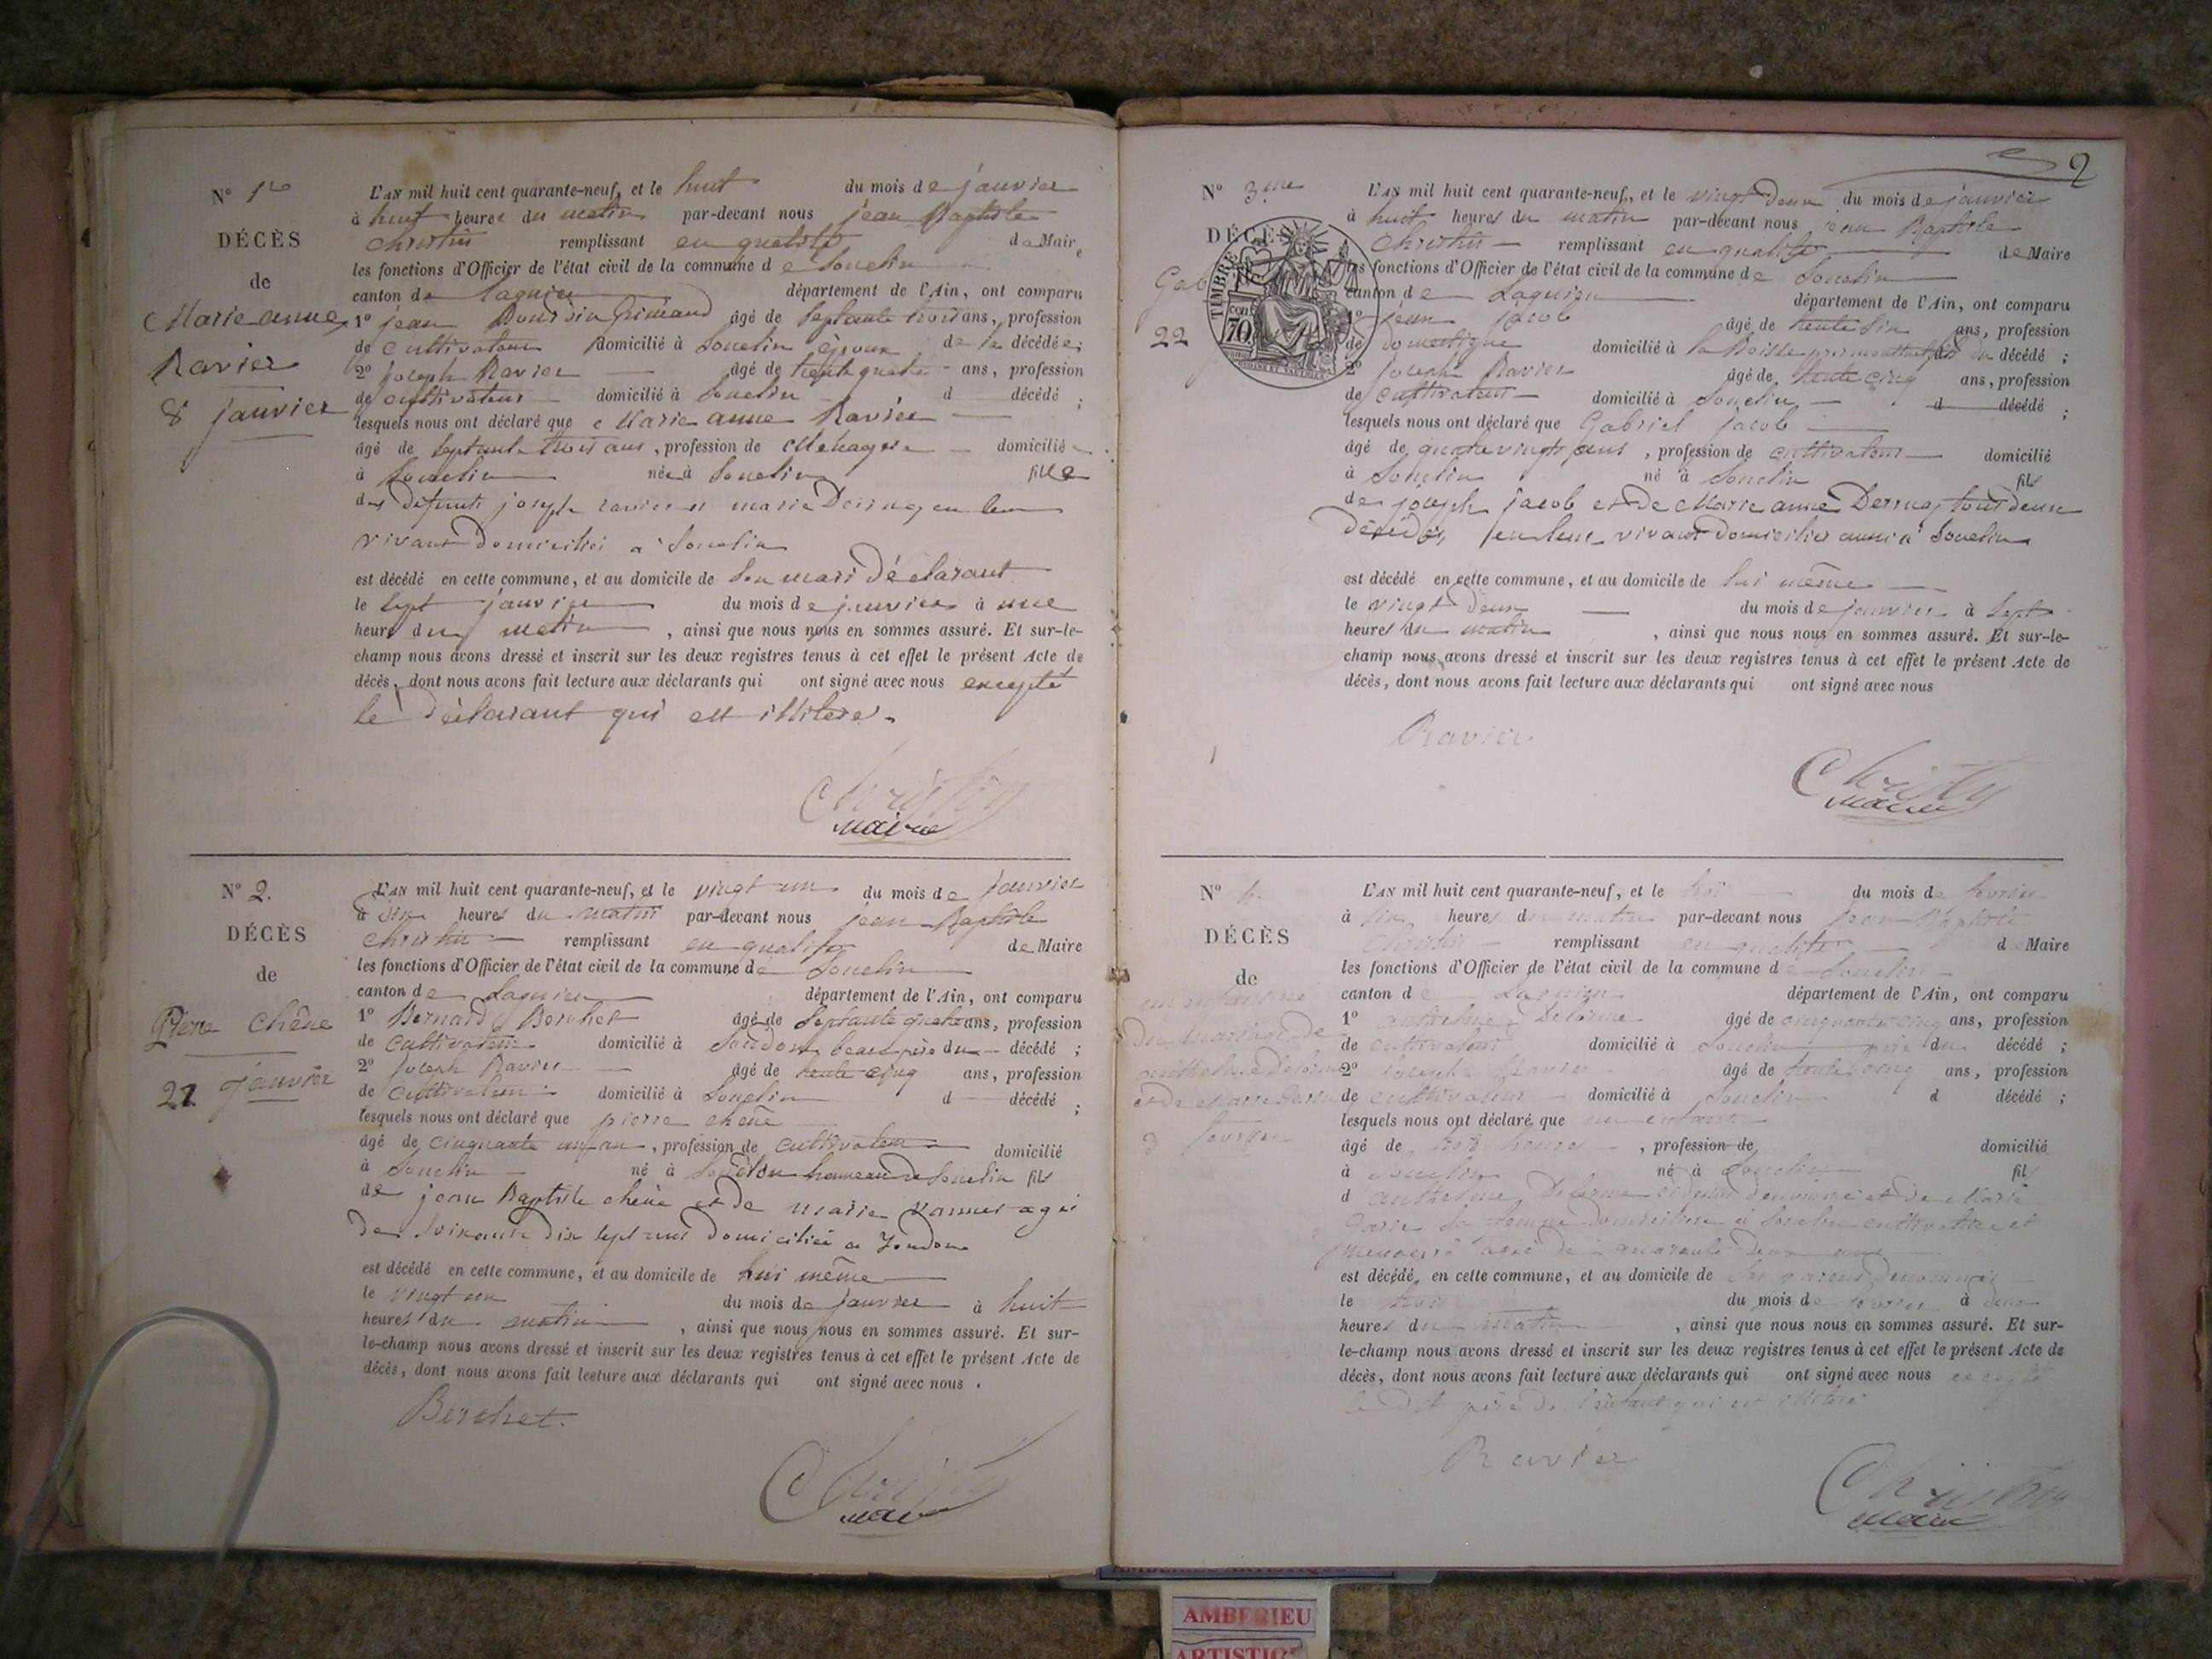 N° 1er
DÉCÈS
de
Marie anne
Ravier
8 janvier
L'AN mil huit cent quarante-neuf, et le huit du mois de janvier
à huit heures du matin par-devant nous jean Baptiste
Christin remplissant en qualité de Maire
les fonctions d'Officier de l'état civil de la commune de Souclin
canton de Lagnieu département de l'Ain, ont comparu
1° jean Bourdin Grimaud âgé de septante trois ans, profession
de cultivateur domicilié à Souclin époux de la décédée ;
2° joseph Ravier âgé de trente quatre ans, profession
de cultivateur domicilié à Souclin d décédé ;
lesquels nous ont déclaré que Marie anne Ravier
âgé de septante trois ans, profession de Menagère domicilié
à Souclin née à Souclin fille
des défunts joseph ravier et marie en leur
vivant domiciliés a Souclin
est décédé en cette commune, et au domicile de son mari déclarant
le sept janvier du mois de janvier à une
heure du matin, ainsi que nous nous en sommes assuré. Et sur-le-
champ nous avons dressé et inscrit sur les deux registres tenus à cet effet le présent Acte de
décès, dont nous avons fait lecture aux déclarants qui ont signé avec nous excepté
le déclarant qui est illitere.
Christin
maire
N° 2.
DÉCÈS
de
Pierre Chêne
21 janvier
L'AN mil huit cent quarante-neuf, et le vingt un du mois de janvier
à dix heures du matin par-devant nous jean Baptiste
Christin remplissant en qualité de Maire
les fonctions d'Officier de l'état civil de la commune de Souclin
canton de Lagnieu département de l'Ain, ont comparu
1° Bernard Berchet âgé de septante quatre ans, profession
de cultivateur domicilié à Soudon beau père du décédé ;
2° joseph Ravier âgé de trente cinq ans, profession
de cultivateur domicilié à Souclin d décédé ;
lesquels nous ont déclaré que pierre chêne
âgé de cinquante un an, profession de cultivateur domicilié
à Souclin né à hameau de Souclin fils
de jean Baptiste chêne et de marie agés
de soixante dix sept ans domiciliés a Soudon
est décédé en cette commune, et au domicile de lui même
le vingt un du mois de janvier à huit
heures du matin, ainsi que nous nous en sommes assuré. Et sur-
le-champ nous avons dressé et inscrit sur les deux registres tenus à cet effet le présent Acte de
décès, dont nous avons fait lecture aux déclarants qui ont signé avec nous.
Berchet.
Christin
maire
2
N° 3me
DÉCÈS
Gab
22
TIMBRE
70
L'AN mil huit cent quarante-neuf, et le vingt deux du mois de janvier
à huit heures du matin par-devant nous jean Baptiste
Christin remplissant en qualité de Maire
les fonctions d'Officier de l'état civil de la commune de Souclin
canton de Lagnieu département de l'Ain, ont comparu
1° jean jacob âgé de trente six ans, profession
de domestique domicilié à la Boisse du décédé ;
2° joseph Ravier âgé de trente cinq ans, profession
de cultivateur domicilié à Souclin d décédé ;
lesquels nous ont déclaré que Gabriel jacob
âgé de quatre vingts ans, profession de cultivateur domicilié
à Souclin né à Souclin fils
de joseph jacob et de Marie anne tous deux
décédés, en leur vivant domiciliés aussi à Souclin
est décédé en cette commune, et au domicile de lui même
le vingt deux du mois de janvier à sept
heures du matin, ainsi que nous nous en sommes assuré. Et sur-le-
champ nous avons dressé et inscrit sur les deux registres tenus à cet effet le présent Acte de
décès, dont nous avons fait lecture aux déclarants qui ont signé avec nous
Ravier
Christin
maire
N° 4.
DÉCÈS
de
un enfant né
du mariage de
anthelme Delorme
et de Marie
3 fevrier
L'AN mil huit cent quarante-neuf, et le trois du mois de fevrier
à six heures du matin par-devant nous jean Baptiste
Christin remplissant en qualité de Maire
les fonctions d'Officier de l'état civil de la commune de Souclin
canton de Lagnieu département de l'Ain, ont comparu
1° anthelme Delorme âgé de cinquante cinq ans, profession
de cultivateur domicilié à Souclin père du décédé ;
2° joseph Ravier âgé de trente cinq ans, profession
de cultivateur domicilié à Souclin d décédé ;
lesquels nous ont déclaré que un enfant
âgé de heures, profession de domicilié
à Souclin né à Souclin fils
d anthelme Delorme et de Marie
sa femme domiciliés à Souclin cultivateur et
menagère agée de quarante deux ans
est décédé en cette commune, et au domicile de ses parens denommés
le trois du mois de fevrier à deux
heures du matin, ainsi que nous nous en sommes assuré. Et sur-
le-champ nous avons dressé et inscrit sur les deux registres tenus à cet effet le présent Acte de
décès, dont nous avons fait lecture aux déclarants qui ont signé avec nous excepté
le dit père de l'enfant qui est illitere
Ravier
Christin
maire
AMBERIEU
ARTISTIQUE